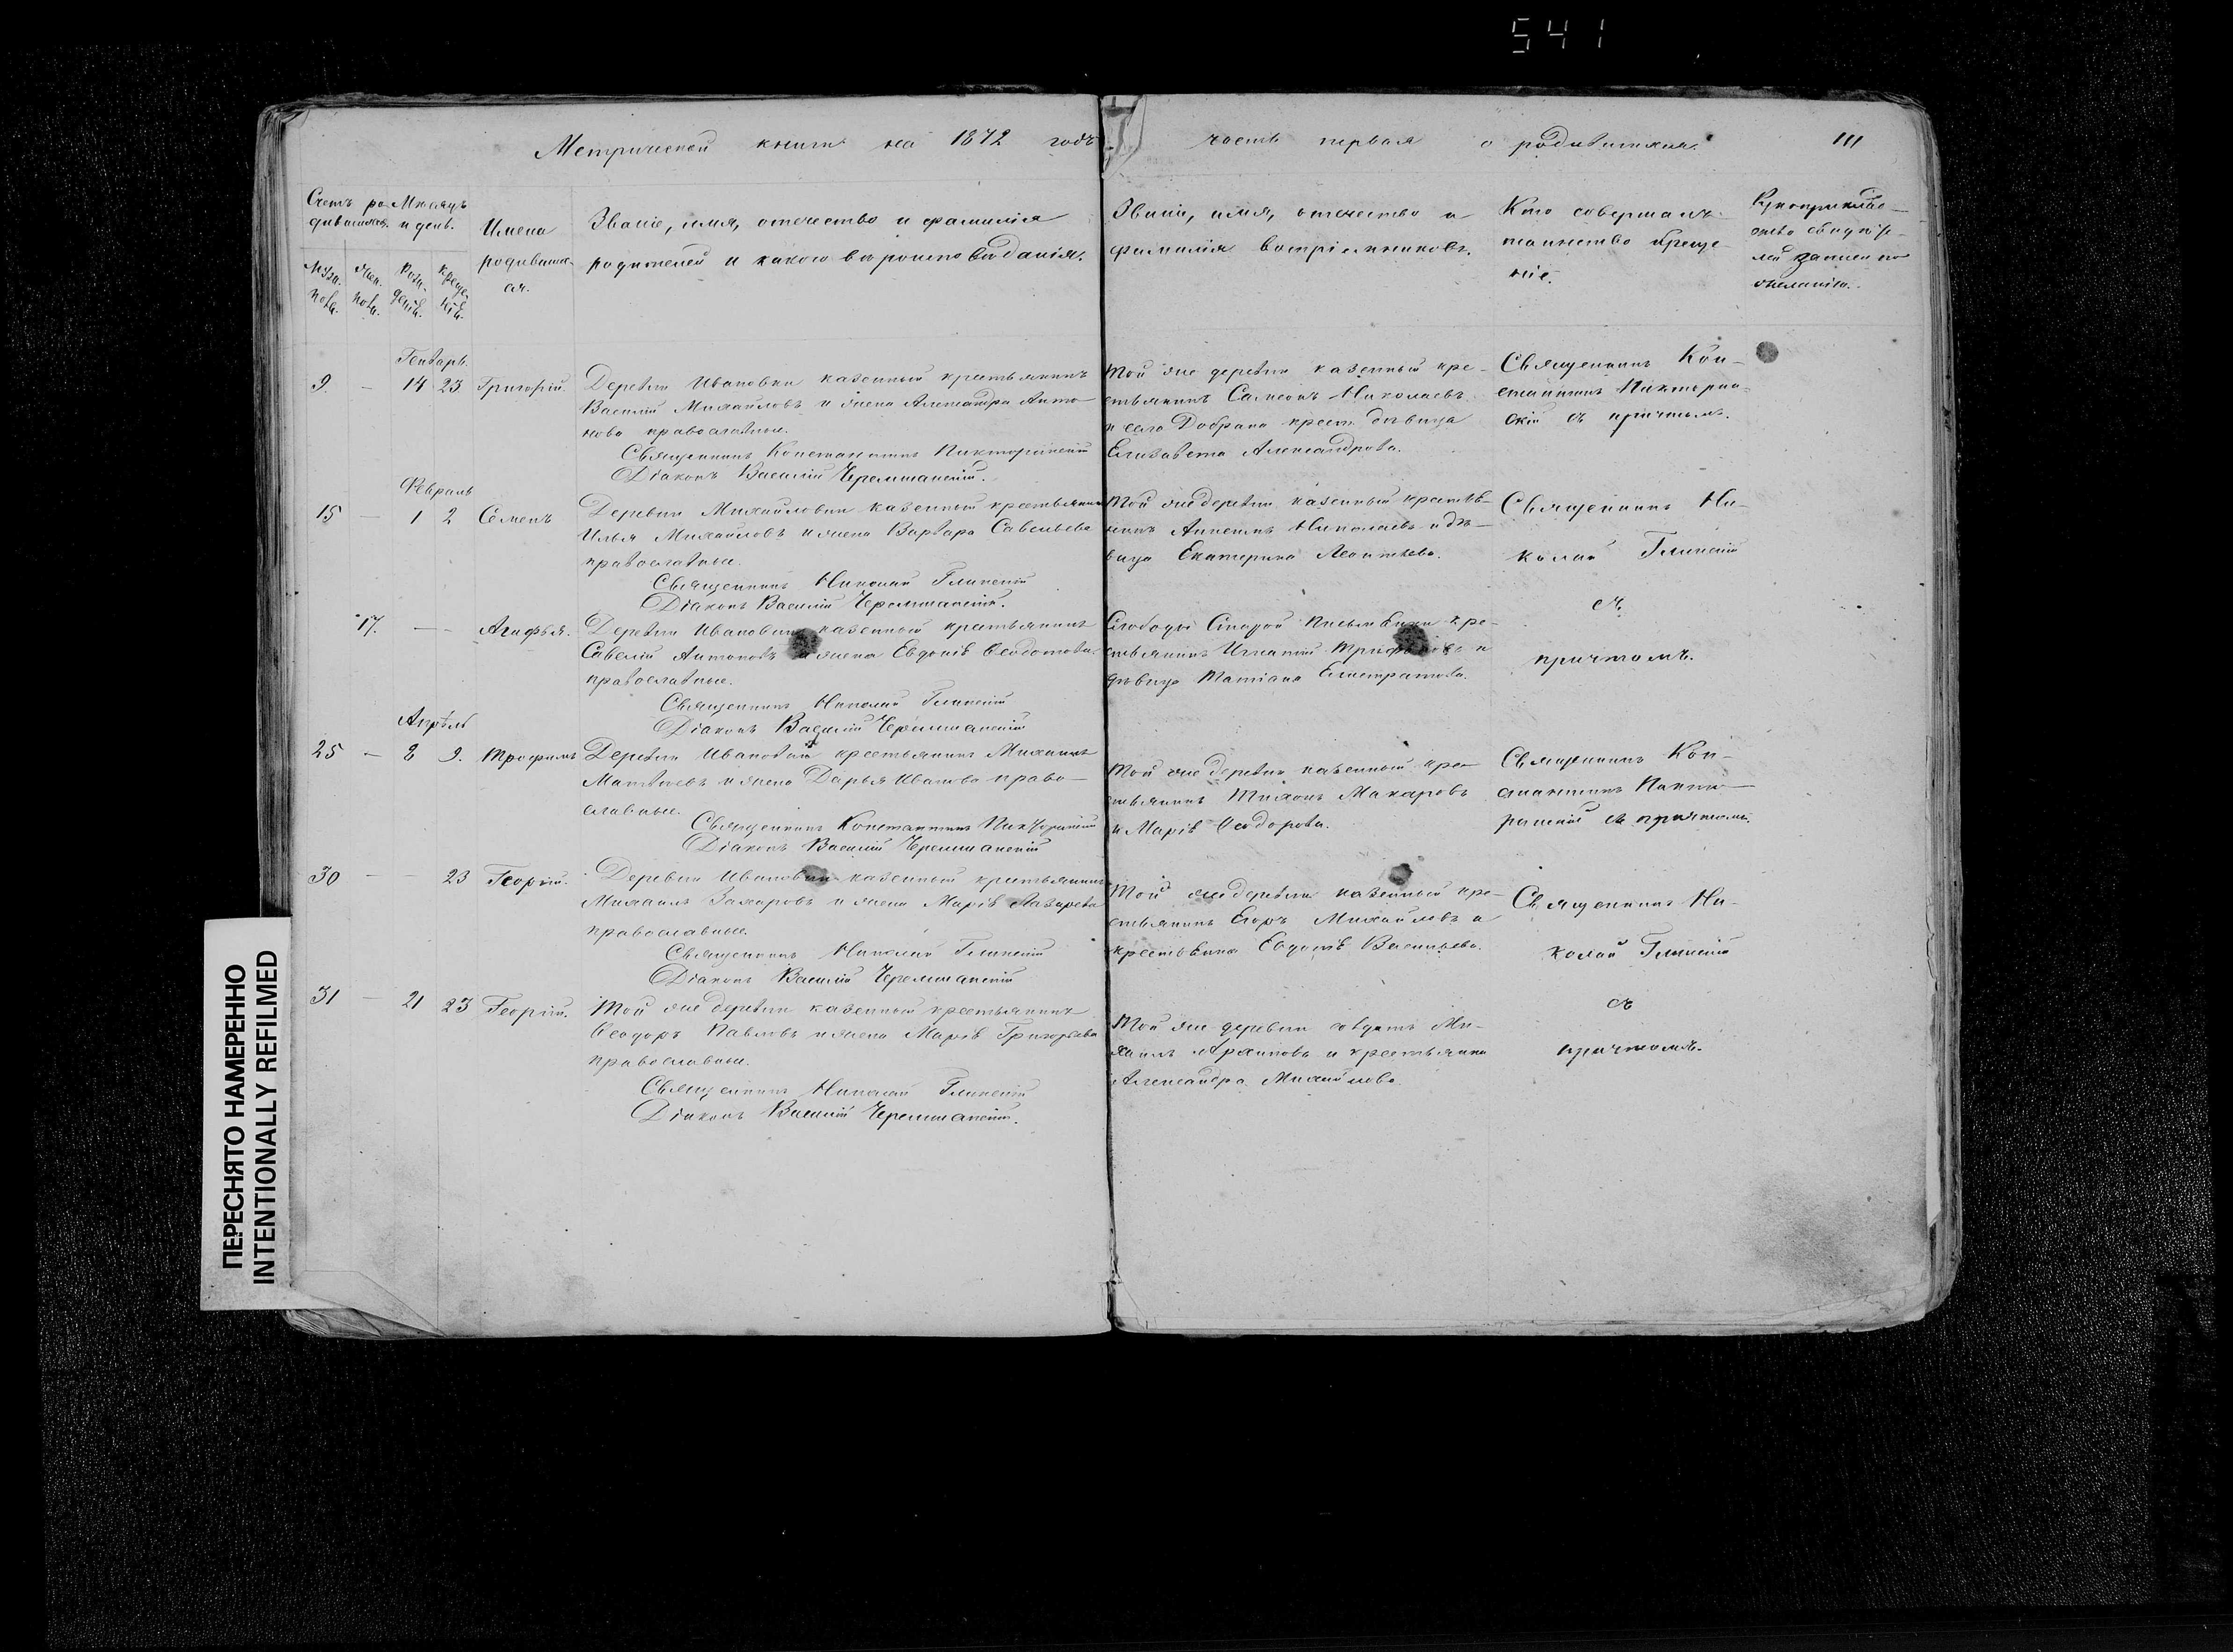 541
Метрической книги на 1872 годъ часть первая о родившихся. 111
Счетъ родившихся.
Мѣсяцъ и день.
Имена родившихся.
Званіе, имя, отечество и фамилія
родителей и какого вѣроисповѣданія.
Званіе, имя, отечество и
фамилія воспріемниковъ.
Кто совершалъ
таинство креще-
ніе.
Рукоприклад-
ство свидѣте-
лей записи по
желанію.
Муж. пола.
Жен. пола.
Рож-
денія.
Креще-
нія.
Генварь.
9. — 14 23 Григорій.
Деревни Ивановки казенный крестьянинъ
Василій Михайловъ и жена Александра Анто-
нова православные.
Священникъ Константинъ
Діаконъ Василій Черемшанскій.
Той же деревни казенный кре-
стьянинъ Самсонъ Николаевъ
и села Добрина крест. дѣвица
Елизавета Александрова.
Священникъ Кон-
стантинъ
скій съ причтомъ.
Февраль
15 — 1 2 Семенъ
Деревни Михайловки казенный крестьянинъ
Илья Михайловъ и жена Варвара Савельева
православные.
Священникъ Николай Глинскій
Діаконъ Василій Черемшанскій.
Той же деревни казенный крестья-
нинъ Николаевъ и дѣ-
вица Екатерина Леонтьева.
Священникъ Ни-
колай Глинскій
съ
причтомъ.
17. — — Агафья.
Деревни Ивановки казенный крестьянинъ
Савелій Антоновъ и жена Евдокія Ѳеодотова
православные.
Священникъ Николай Глинскій
Діаконъ Василій Черемшанскій
Слободы Старой Письмянки кре-
стьянинъ Игнатій и
дѣвица Татіана Елистратова.
Апрѣль
25 — 8 9. Трофимъ
Деревни Ивановки крестьянинъ Михаилъ
Матвѣевъ и жена Дарья Иванова право-
славные.
Священникъ Константинъ
Діаконъ Василій Черемшанскій
Той же деревни казенный кре-
стьянинъ Тихонъ Макаровъ
и Марія Ѳеодорова.
Священникъ Кон-
стантинъ
съ причтомъ.
30 — — 23 Георгій.
Деревни Ивановки казенный крестьянинъ
Михаилъ Захаровъ и жена Марія Лазарева
православные.
Священникъ Николай Глинскій
Діаконъ Василій Черемшанскій
Той же деревни казенный кре-
стьянинъ Егоръ Михайловъ и
крестьянка Евдокія Васильева.
Священникъ Ни-
колай Глинскій
съ
причтомъ.
31 — 21 23 Георгій.
Той же деревни казенный крестьянинъ
Ѳеодоръ Павловъ и жена Марія Григорьева
православные.
Священникъ Николай Глинскій
Діаконъ Василій Черемшанскій.
Той же деревни солдатъ Ми-
хаилъ Архиповъ и крестьянка
Александра Михайлова.
ПЕРЕСНЯТО НАМЕРЕННО
INTENTIONALLY REFILMED